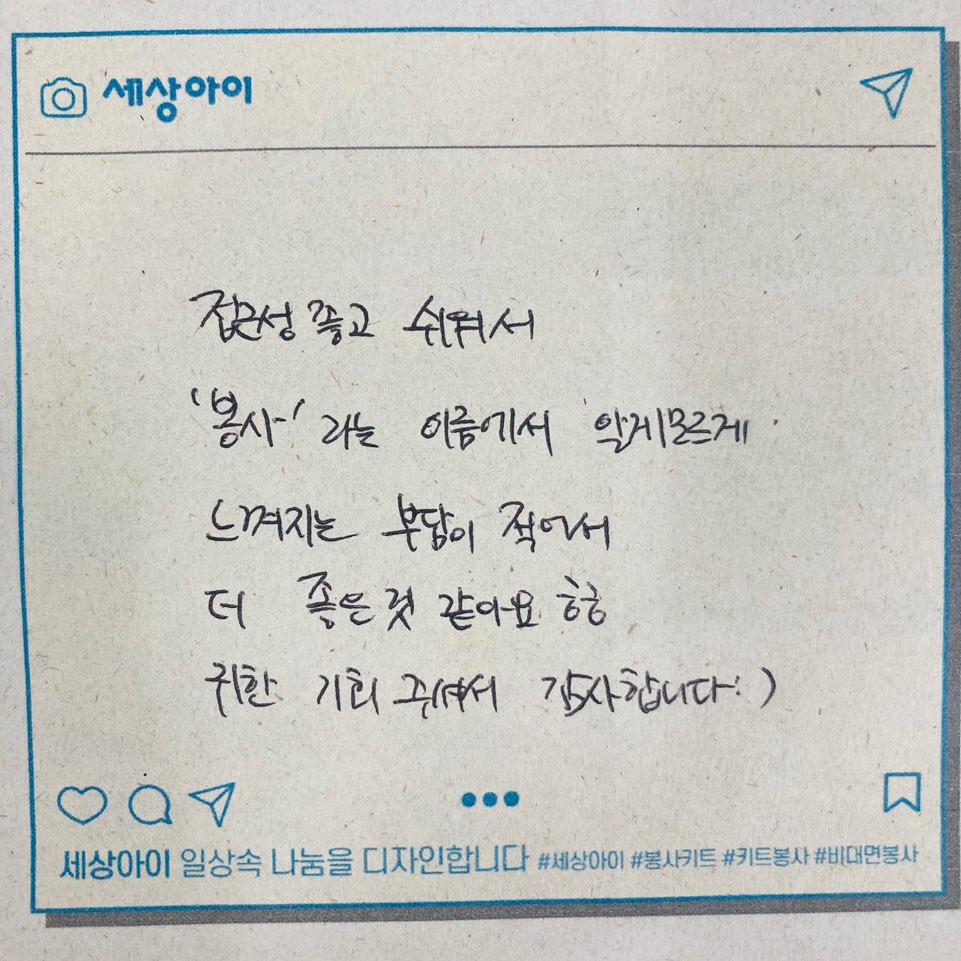 세상아이
접근성 좋고 쉬워서
'봉사'라는 이름에서 알게모르게
느껴지는 부담이 적어서
더 좋은 것 같아요 ㅎㅎ
귀한 기회 주셔서 감사합니다:)
세상아이 일상속 나눔을 디자인합니다 #세상아이 #봉사키트 #키트봉사 #비대면봉사